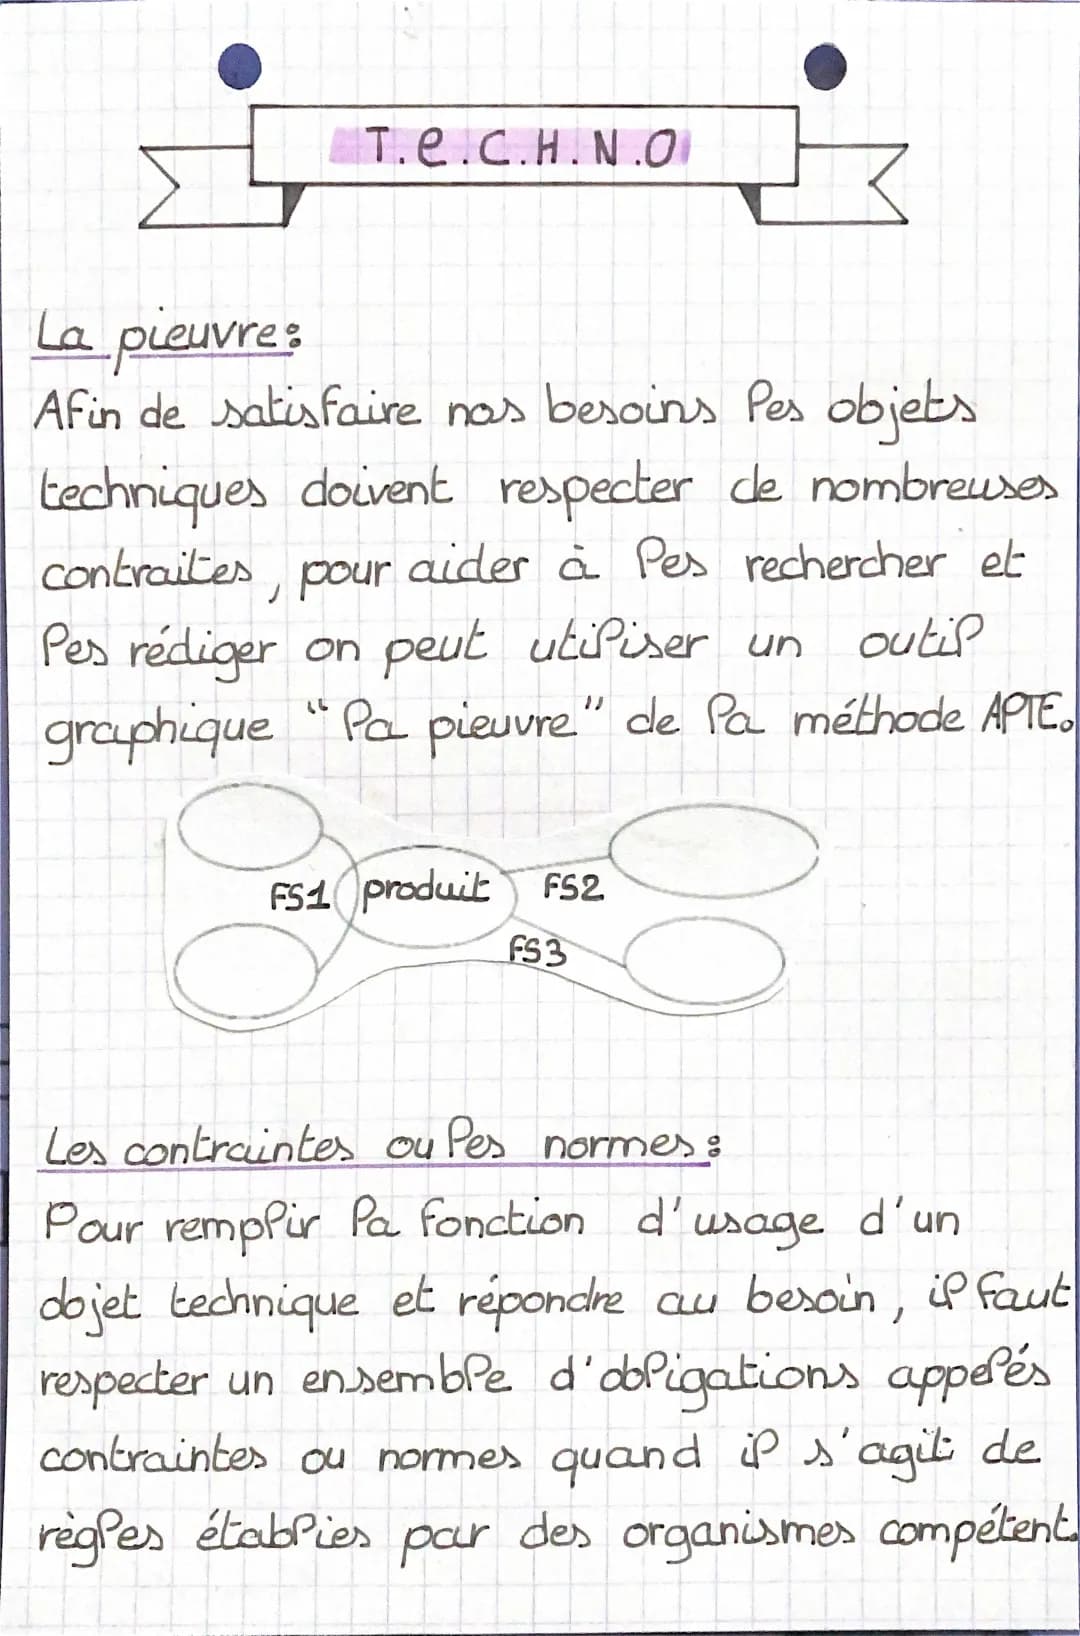 T.e.C.H.N.O
La pieuvre:
Afin de satisfaire nos besoins les objets
techniques doivent respecter de nombreuses
contraites, pour aider à les rechercher et
les rédiger on peut utiliser un outil
graphique "la pieuvre" de la méthode APTE.
FS1 produit FS2
FS3
Les contraintes ou les normes:
Pour remplir la fonction d'usage d'un
objet technique et répondre au besoin, il faut
respecter un ensemble d'obligations appelés
contraintes ou normes quand il s'agit de
règles établies par des organismes compétent.